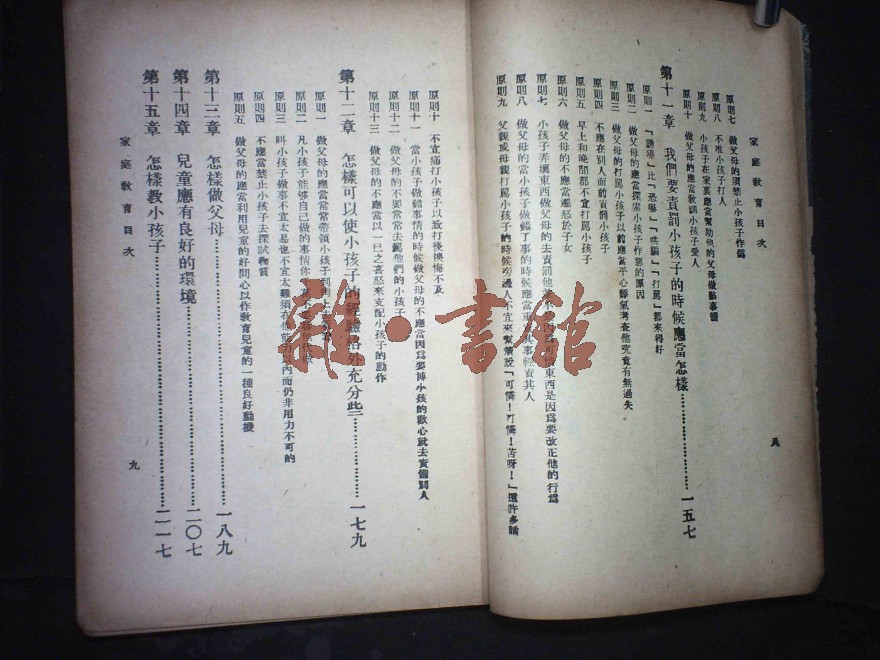 家庭教育目次
八
原則七 做父母的須禁止小孩子作僞
原則八 不准小孩子打人
原則九 小孩子在家裏應當幫助他的父母做點事體
原則十 做父母的應當教訓小孩子愛人
第十一章 我們要責罰小孩子的時候應當怎樣……一五七
原則一 「誘導」比「恐嚇」「哄騙」「打罵」都來得好
原則二 做父母的應當探索小孩子作惡的原因
原則三 做父母的打罵小孩子以前應當平心靜氣考查他究竟有無過失
原則四 不應在別人面前責罰小孩子
原則五 早上和晚間都不宜打罵小孩子
原則六 做父母的不應當遷怒於子女
原則七 小孩子弄壞東西做父母的去責罰他 東西是因爲要改正他的行爲
原則八 做父母的當小孩子做錯了事的時候應當重 其事輕責其人
原則九 父親或母親打罵小孩子的時候旁邊人不宜來幫 說「可憐！可憐！苦呀！」這許多話
原則十 不宜痛打小孩子以致打後懊悔不及
原則十一 當小孩子做錯事情的時候做父母的不應當因爲要博小孩的歡心就去責備別人
原則十二 做父母的不要常常去罵他們的小孩子
原則十三 做父母的不應當以一己之喜怒來支配小孩子的動作
第十二章 怎樣可以使小孩子的經驗格外充分些……一七九
原則一 做父母的應當常常帶領小孩子到街上去
原則二 凡小孩子能够自己做的事情你
原則三 叫小孩子做事不宜太易也不宜太難須在他能力以內而仍非用力不可的
原則四 不應當禁止小孩子去探試物質
原則五 做父母的應當利用兒童的好問心以作教育兒童的一種良好動機
第十三章 怎樣做父母……一八九
第十四章 兒童應有良好的環境……二〇七
第十五章 怎樣教小孩子……二一七
家庭教育目次
九
雜·書館